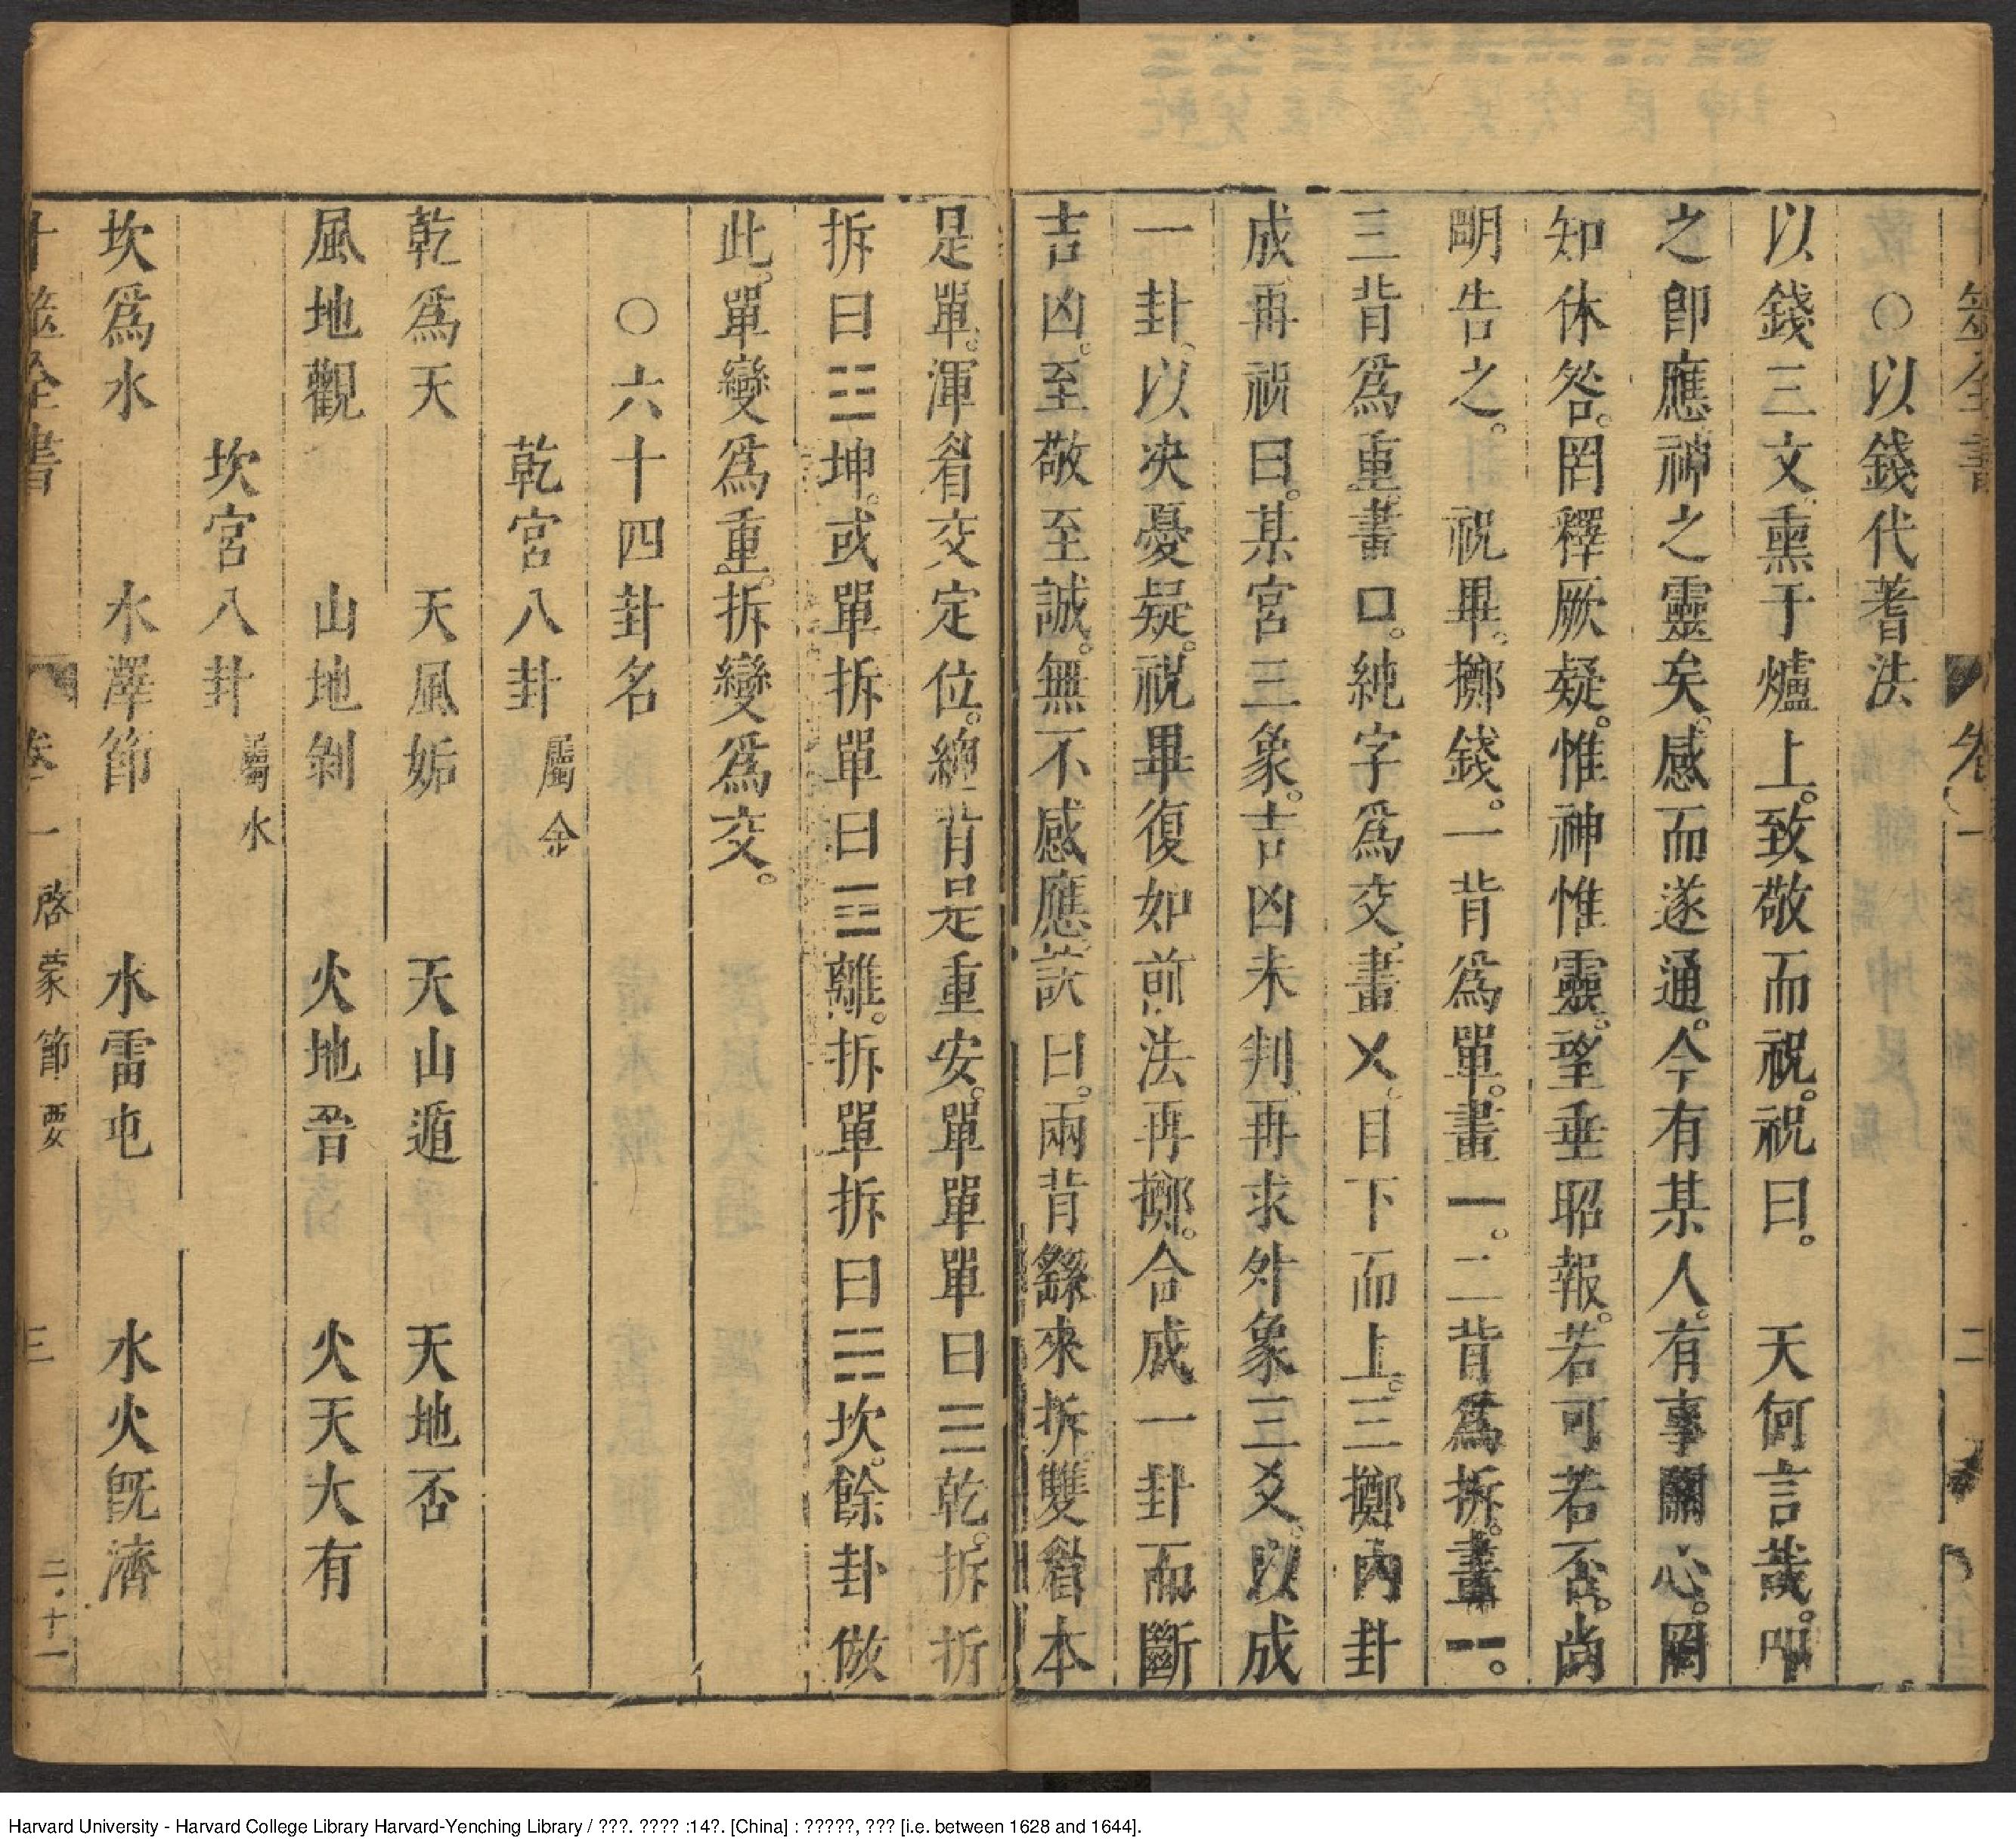 ○以錢代蓍法
以錢三文熏于爐上。致敬而祝。祝曰。天何言哉。叩
之卽應神之靈矣。感而遂通。今有某人。有事關心。罔
知休咎。罔釋厥疑。惟神惟靈。望垂昭報。若可若否。尚
明告之。祝畢。擲錢。一背爲單。畫一。二背爲拆。畫⚋。
三背爲重。畫口。純字爲交。畫乂。自下而上。三擲內卦
成。再祝曰。某宮三象。吉凶未判。再求外象三爻。以成
一卦。以决憂疑。祝畢復如前法再擲。合成一卦而斷
吉凶。至敬至誠。無不感應。訣曰。兩背繇來拆。雙眉本
是單。渾眉交定位。總背是重安。單單單曰☰乾。拆拆
拆曰☷坤。或單拆單曰☲離。拆單拆曰☵坎。餘卦倣
此。單變爲重。拆變爲交。
○六十四卦名
乾宮八卦 屬金
乾爲天 天風姤 天山遁 天地否
風地觀 山地剝 火地晋 火天大有
坎宮八卦 屬水
坎爲水 水澤節 水雷屯 水火旣濟
卷一 啓蒙節要 三 二。十一